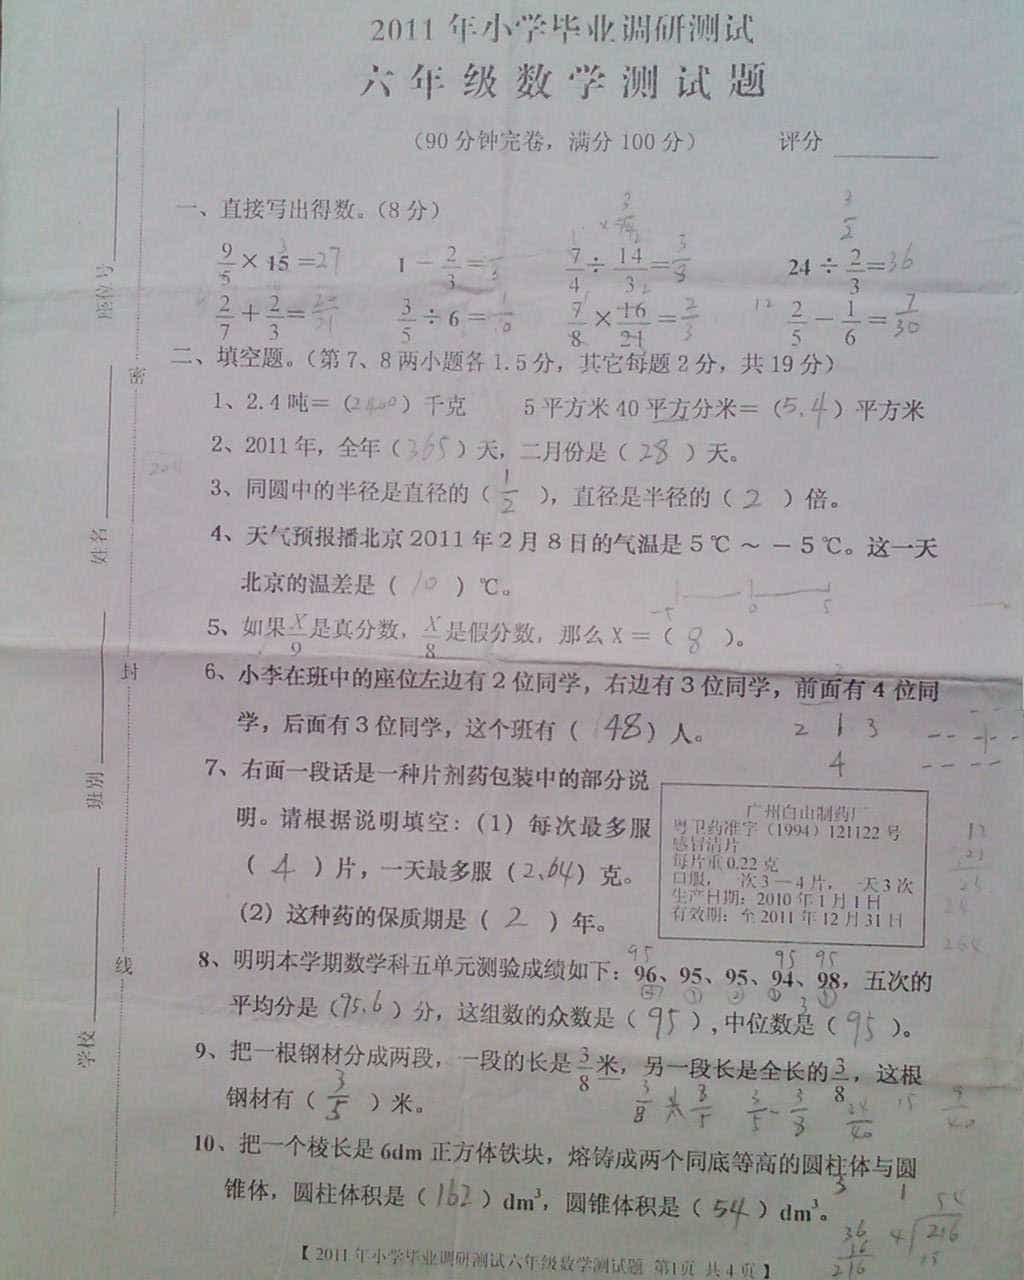 2011年小学毕业调研测试
六年级数学测试题
（90分钟完卷，满分100分） 评分
一、直接写出得数。（8分）
9/5 × 15 = 27 1 - 2/3 = 7/4 ÷ 14/3 = 3/8 24 ÷ 2/3 = 36
2/7 + 2/3 = 3/5 ÷ 6 = 1/10 7/8 × 16/21 = 2/3 2/5 - 1/6 = 7/30
二、填空题。（第7、8两小题各1.5分，其它每题2分，共19分）
1、2.4吨＝（2400）千克 5平方米40平方分米＝（5.4）平方米
2、2011年，全年（365）天，二月份是（28）天。
3、同圆中的半径是直径的（1/2），直径是半径的（2）倍。
4、天气预报播北京2011年2月8日的气温是5℃～－5℃。这一天
北京的温差是（10）℃。
-5 0 5
5、如果X/9是真分数，X/8是假分数，那么X＝（8）。
6、小李在班中的座位左边有2位同学，右边有3位同学，前面有4位同
学，后面有3位同学，这个班有（48）人。
2 1 3
4
7、右面一段话是一种片剂药包装中的部分说
明。请根据说明填空：（1）每次最多服
（4）片，一天最多服（2.64）克。
（2）这种药的保质期是（2）年。
广州白山制药厂
粤卫药准字（1994）121122号
感冒清片
每片重0.22克
口服，一次3—4片，一天3次
生产日期：2010年1月1日
有效期：至2011年12月31日
95 95 95
8、明明本学期数学科五单元测验成绩如下：96、95、95、94、98，五次的
平均分是（95.6）分，这组数的众数是（95），中位数是（95）。
9、把一根钢材分成两段，一段的长是3/8米，另一段长是全长的3/8，这根
钢材有（3/5）米。
10、把一个棱长是6dm正方体铁块，熔铸成两个同底等高的圆柱体与圆
锥体，圆柱体积是（162）dm³，圆锥体积是（54）dm³。
3 1
36
36
216
54
4 216
【2011年小学毕业调研测试六年级数学测试题 第1页 共4页】
座位号
姓名
班别
学校
密
封
线